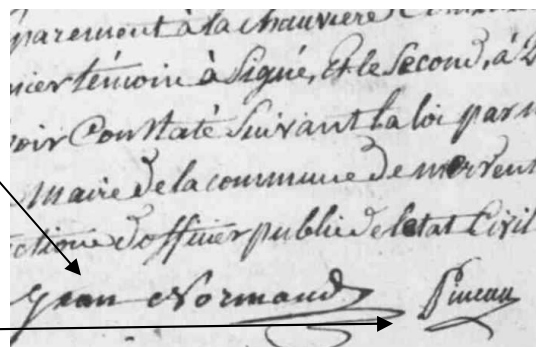 parement à la chauviere
mier témoin à Signé, Et le Second, à
voir Constaté Suivant la loi par
maire de la commune de mervent
d'officier public de letat Civil
Jean Normand Pineau